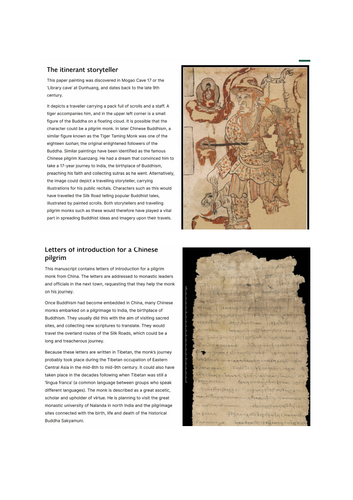 The itinerant storyteller
This paper painting was discovered in Mogao Cave 17 or the
'Library cave' at Dunhuang, and dates back to the late 9th
century.
It depicts a traveller carrying a pack full of scrolls and a staff. A
tiger accompanies him, and in the upper left corner is a small
figure of the Buddha on a floating cloud. It is possible that the
character could be a pilgrim monk. In later Chinese Buddhism, a
similar figure known as the Tiger Taming Monk was one of the
eighteen luohan, the original enlightened followers of the
Buddha. Similar paintings have been identified as the famous
Chinese pilgrim Xuanzang. He had a dream that convinced him to
take a 17-year journey to India, the birthplace of Buddhism,
preaching his faith and collecting sutras as he went. Alternatively,
the image could depict a travelling storyteller, carrying
illustrations for his public recitals. Characters such as this would
have travelled the Silk Road telling popular Buddhist tales,
illustrated by painted scrolls. Both storytellers and travelling
pilgrim monks such as these would therefore have played a vital
part in spreading Buddhist ideas and imagery upon their travels.
Letters of introduction for a Chinese
pilgrim
This manuscript contains letters of introduction for a pilgrim
monk from China. The letters are addressed to monastic leaders
and officials in the next town, requesting that they help the monk
on his journey.
Once Buddhism had become embedded in China, many Chinese
monks embarked on a pilgrimage to India, the birthplace of
Buddhism. They usually did this with the aim of visiting sacred
sites, and collecting new scriptures to translate. They would
travel the overland routes of the Silk Roads, which could be a
long and treacherous journey.
Because these letters are written in Tibetan, the monk's journey
probably took place during the Tibetan occupation of Eastern
Central Asia in the mid-8th to mid-9th century. It could also have
taken place in the decades following when Tibetan was still a
'lingua franca' (a common language between groups who speak
different languages). The monk is described as a great ascetic,
scholar and upholder of virtue. He is planning to visit the great
monastic university of Nalanda in north India and the pilgrimage
sites connected with the birth, life and death of the historical
Buddha Sakyamuni.